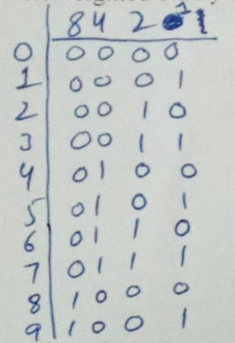 8 4 2 1
0 0 0 0 0
1 0 0 0 1
2 0 0 1 0
3 0 0 1 1
4 0 1 0 0
5 0 1 0 1
6 0 1 1 0
7 0 1 1 1
8 1 0 0 0
9 1 0 0 1